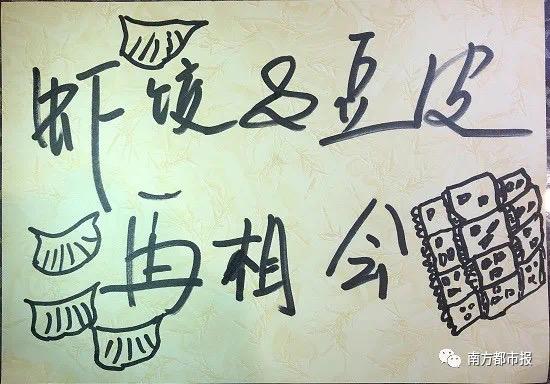 虾饺&豆皮
再相会
南方都市报